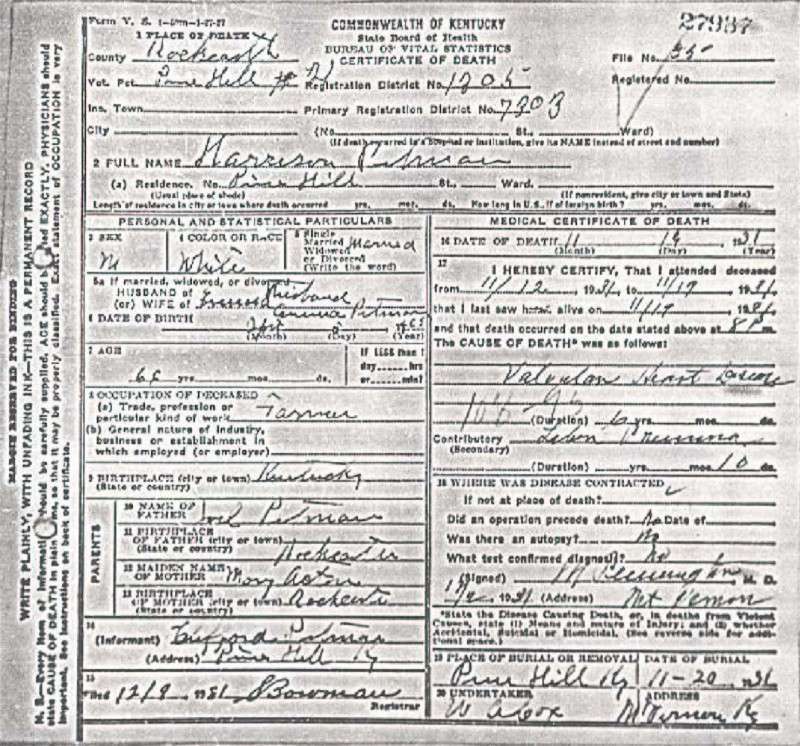 Form V. S. 1-50m-1-27-27
COMMONWEALTH OF KENTUCKY
State Board of Health
BUREAU OF VITAL STATISTICS
CERTIFICATE OF DEATH
27937
1 PLACE OF DEATH
County Rockcastle
Vot. Pct Pine Hill # 2
File No.
Registration District No. 1205
Registered No.
Ins. Town
Primary Registration District No. 7303
City (No. St., Ward)
(If death occurred in a hospital or institution, give its NAME instead of street and number)
2 FULL NAME Harrison Pitman
(a) Residence. No. Pine Hill St., Ward.
(Usual place of abode) (If nonresident, give city or town and State)
Length of residence in city or town where death occurred yrs. mos. ds. How long in U. S., if of foreign birth? yrs. mos. ds.
PERSONAL AND STATISTICAL PARTICULARS
3 SEX
M
4 COLOR OR RACE
White
5 Single
Married
Widowed
or Divorced
(Write the word)
Married
5a If married, widowed, or divorced
HUSBAND of
(or) WIFE of
Husband
Pitman
6 DATE OF BIRTH
(Month) (Day) (Year)
7 AGE
yrs. mos. ds.
If LESS than 1
day hrs
or min?
8 OCCUPATION OF DECEASED
(a) Trade, profession or
particular kind of work Farmer
(b) General nature of industry,
business or establishment in
which employed (or employer)
9 BIRTHPLACE (city or town) Kentucky
(State or country)
PARENTS
10 NAME OF
FATHER Pitman
11 BIRTHPLACE
OF FATHER (city or town)
(State or country) Rockcastle
12 MAIDEN NAME
OF MOTHER Mary
13 BIRTHPLACE
OF MOTHER (city or town) Rockcastle
(State or country)
14
(Informant) Pitman
(Address) Pine Hill Ky
15
Filed 12/9 1931 Bowman
Registrar
MEDICAL CERTIFICATE OF DEATH
16 DATE OF DEATH 11 19 1931
(Month) (Day) (Year)
17
I HEREBY CERTIFY, That I attended deceased
from 11/12 1931 to 11/19 1931
that I last saw h alive on 11/19 1931
and that death occurred on the date stated above at 8 P m.
The CAUSE OF DEATH* was as follows:
Valvular Heart Disease
(Duration) 6 yrs. mos. ds.
Contributory Pneumonia
(Secondary)
(Duration) yrs. mos. 10 ds.
18 WHERE WAS DISEASE CONTRACTED
If not at place of death?
Did an operation precede death? No Date of
Was there an autopsy? No
What test confirmed diagnosis? No
(Signed) M Pennington M. D.
1931 (Address) Mt Vernon
*State the Disease Causing Death, or, in deaths from Violent
Causes, state (1) Means and nature of Injury; and (2) whether
Accidental, Suicidal or Homicidal. (See reverse side for addi-
tional space.)
19 PLACE OF BURIAL OR REMOVAL
Pine Hill Ky
DATE OF BURIAL
11-20 1931
20 UNDERTAKER
W A Cox
ADDRESS
Mt Vernon Ky
MARGIN RESERVED FOR BINDING
WRITE PLAINLY, WITH UNFADING INK—THIS IS A PERMANENT RECORD
N. B.—Every item of information should be carefully supplied. AGE should be stated EXACTLY. PHYSICIANS should
state CAUSE OF DEATH in plain terms, so that it may be properly classified. Exact statement of OCCUPATION is very
important. See instructions on back of certificate.